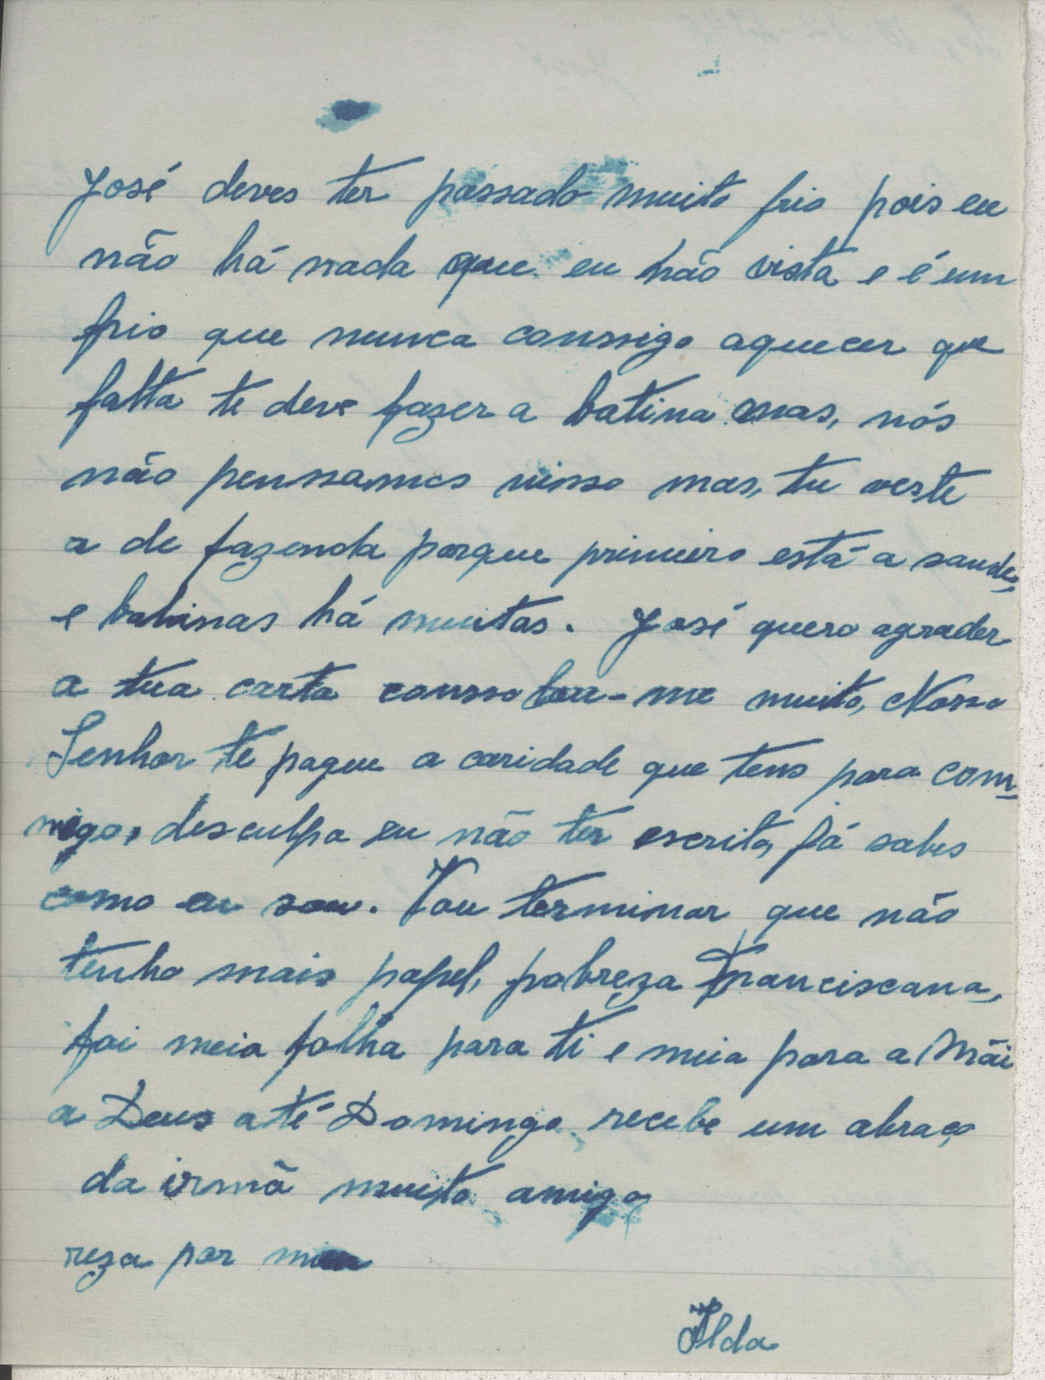 José deves ter passado muito frio pois eu
não há nada que eu não vista e é um
frio que nunca conssigo aquecer que
falta te deve fazer a batina mas, nós
não penssamos nisso mas, tu veste
a de fazenda porque primeiro está a saude,
e batinas há muitas. José quero agrader
a tua carta conssolou-me muito, Nosso
Senhor te pague a caridade que tens para com-
migo, desculpa eu não ter escrito, já sabes
como eu sou. Vou terminar que não
tenho mais papel, pobreza Franciscana,
foi meia folha para ti e meia para a Mãi
a Deus até Domingo, recebe um abraço
da irmã muito amiga
reza por mim
Ilda